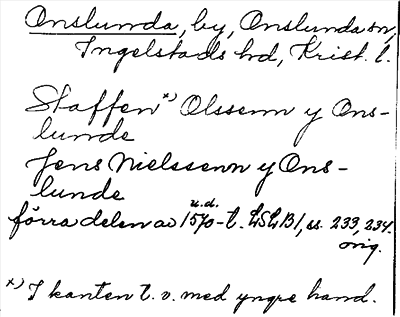 Onslunda, by, Onslunda sn,
Ingelstads hd, Krist. l.
Staffen x) Olssenn y Ons-
lunde
Jens Nielssenn y Ons-
lunde
u.d.
förra delen av 1570-t. LSLB1, ss. 233, 234.
orig.
x) I kanten t. v. med yngre hand.